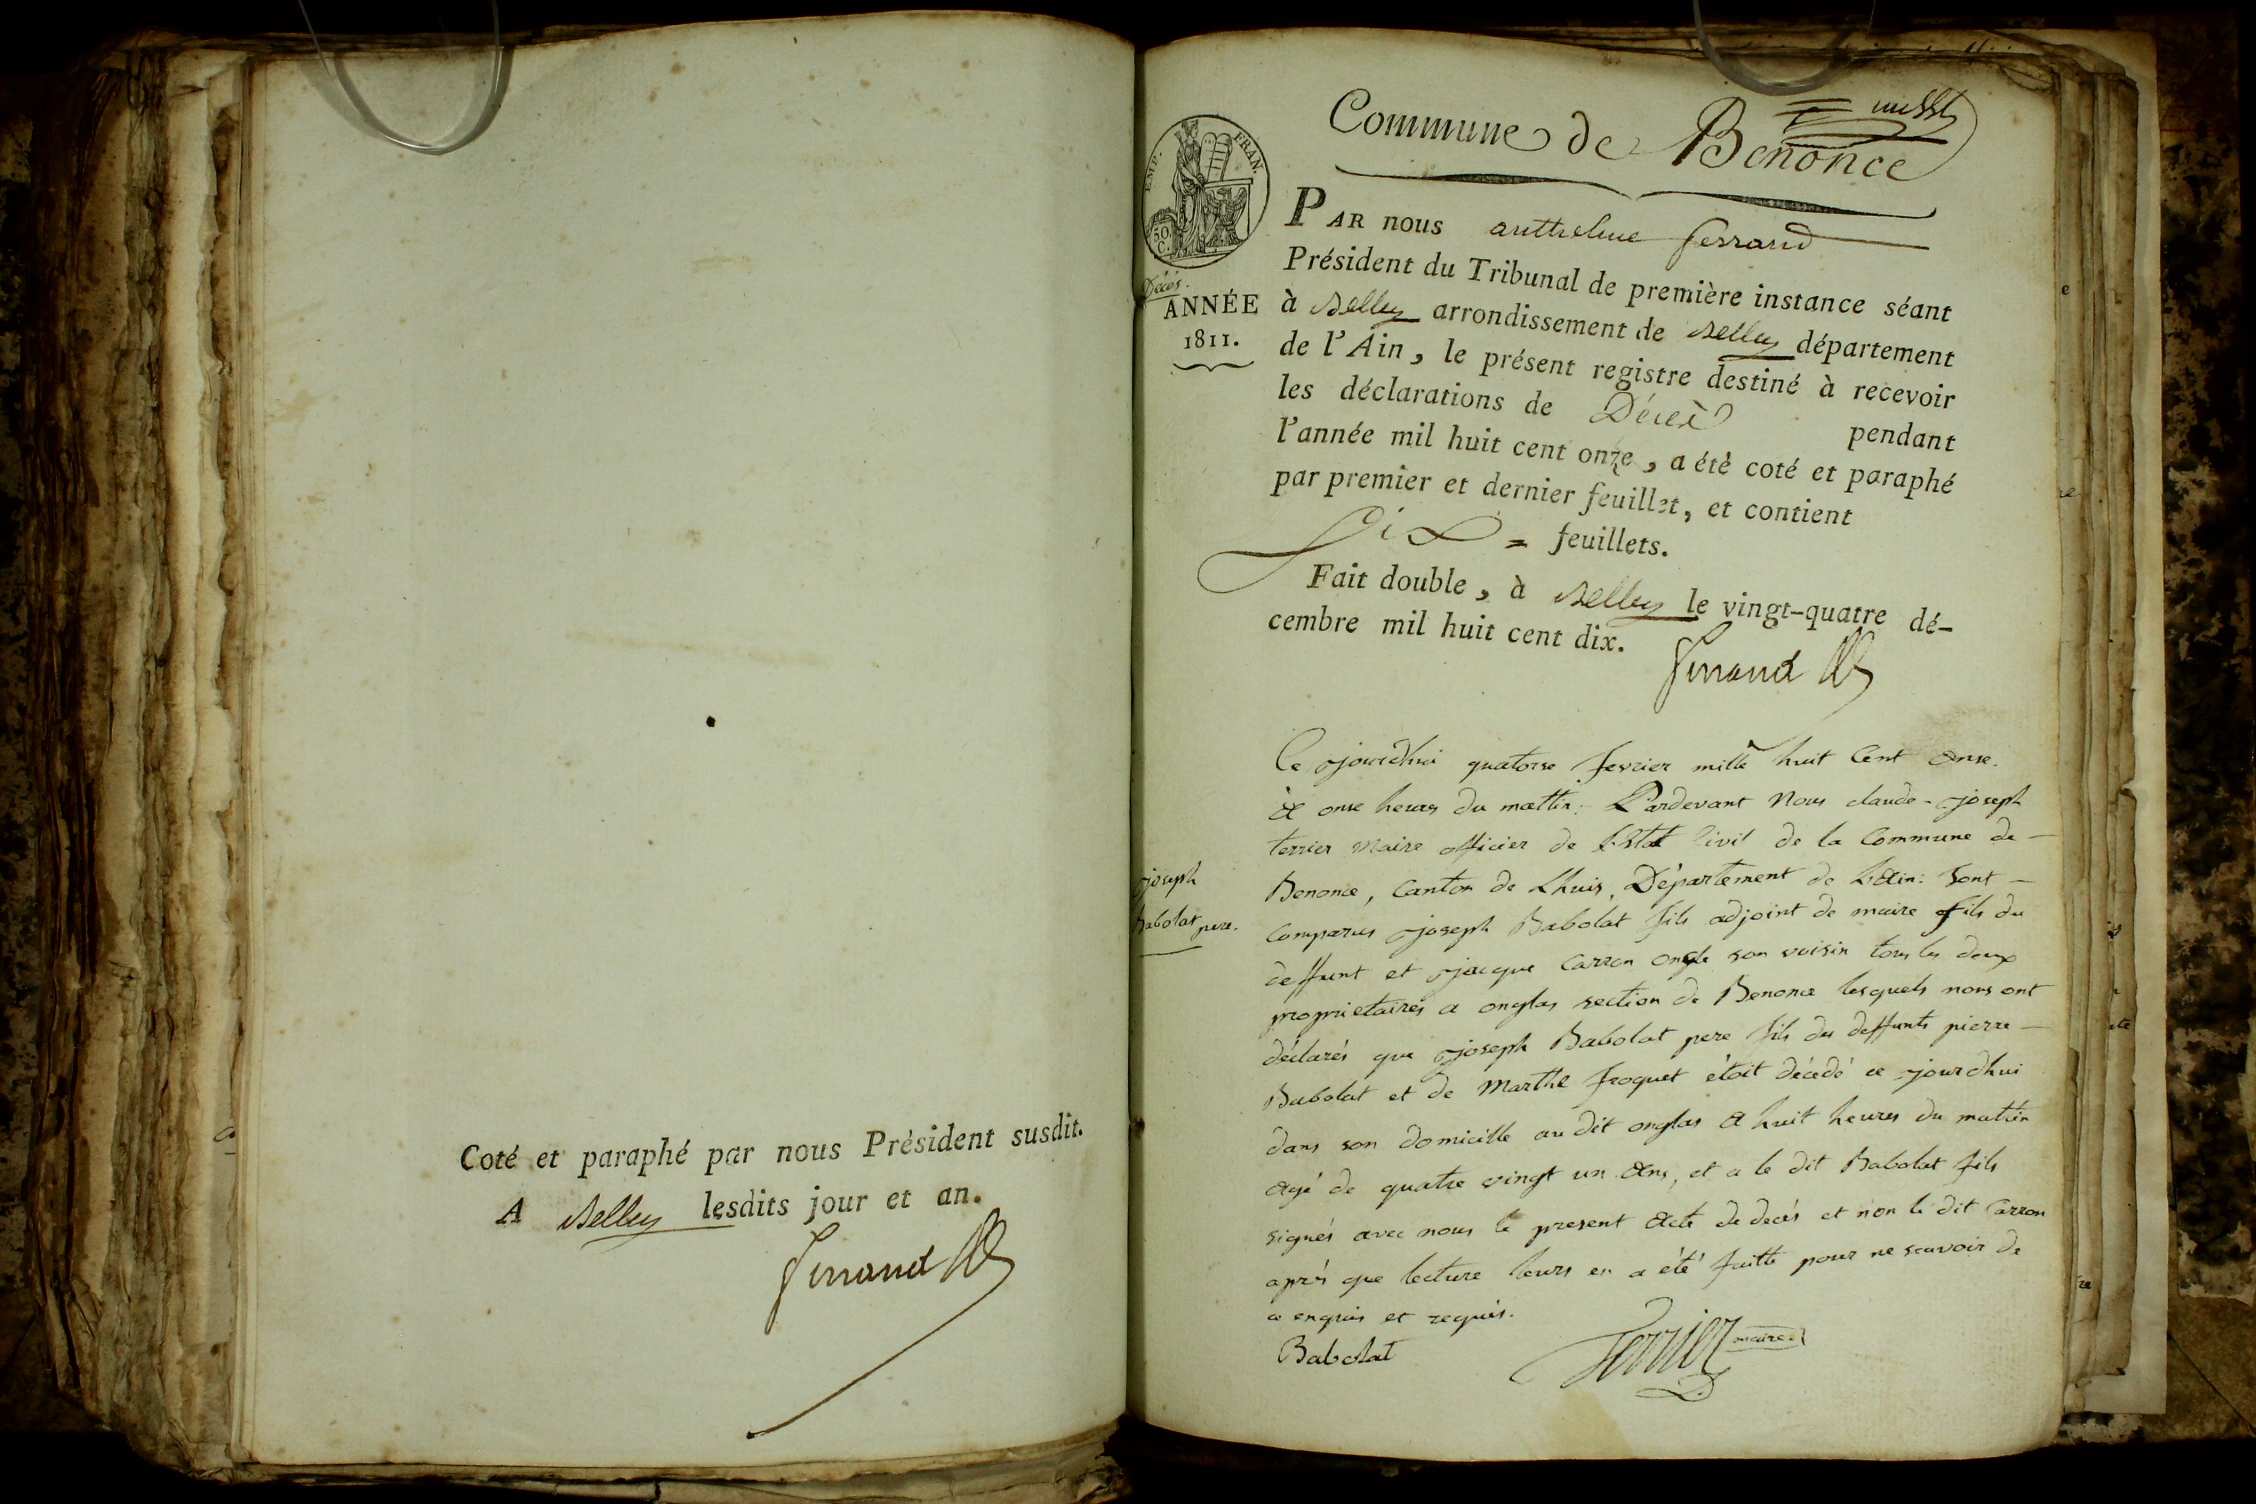 Coté et paraphé par nous Président susdit.
A Belley lesdits jour et an.
Ferrand
Commune de Benonce
EMP. FRAN.
50.
C.
Décés.
ANNÉE
1811.
PAR nous anthelme ferrand
Président du Tribunal de première instance séant
à Belley arrondissement de Belley département
de l'Ain, le présent registre destiné à recevoir
les déclarations de Décès pendant
l'année mil huit cent onze, a été coté et paraphé
par premier et dernier feuillet, et contient
Six = feuillets.
Fait double, à Belley le vingt-quatre dé-
cembre mil huit cent dix.
Ferrand
joseph
Babolat pere.
Ce jourdhui quatorse fevrier mille huit Cent onse.
a onse heures du mattin: Pardevant Nous claude-joseph
terrier Maire officier de L'Etat Civil de la Commune de
Benonce, Canton de Lhuis, Département de L'ain: Sont
Comparus joseph Babolat fils adjoint de maire fils du
deffunt et jacque Carron son voisin tous les deux
proprietaires a onglas section de Benonce lesquels nous ont
déclarés que joseph Babolat pere fils des deffunts pierre
Babolat et de Marthe froquet étoit décédé ce jourdhui
dans son domicille au dit onglas a huit heures du mattin
agé de quatre vingt un ans, et a le dit Babolat fils
signés avec nous le present acte de decés et non le dit Carron
aprés que lecture leurs en a été faitte pour ne scavoir de
ce enquis et requis.
Babolat
Terrier maire